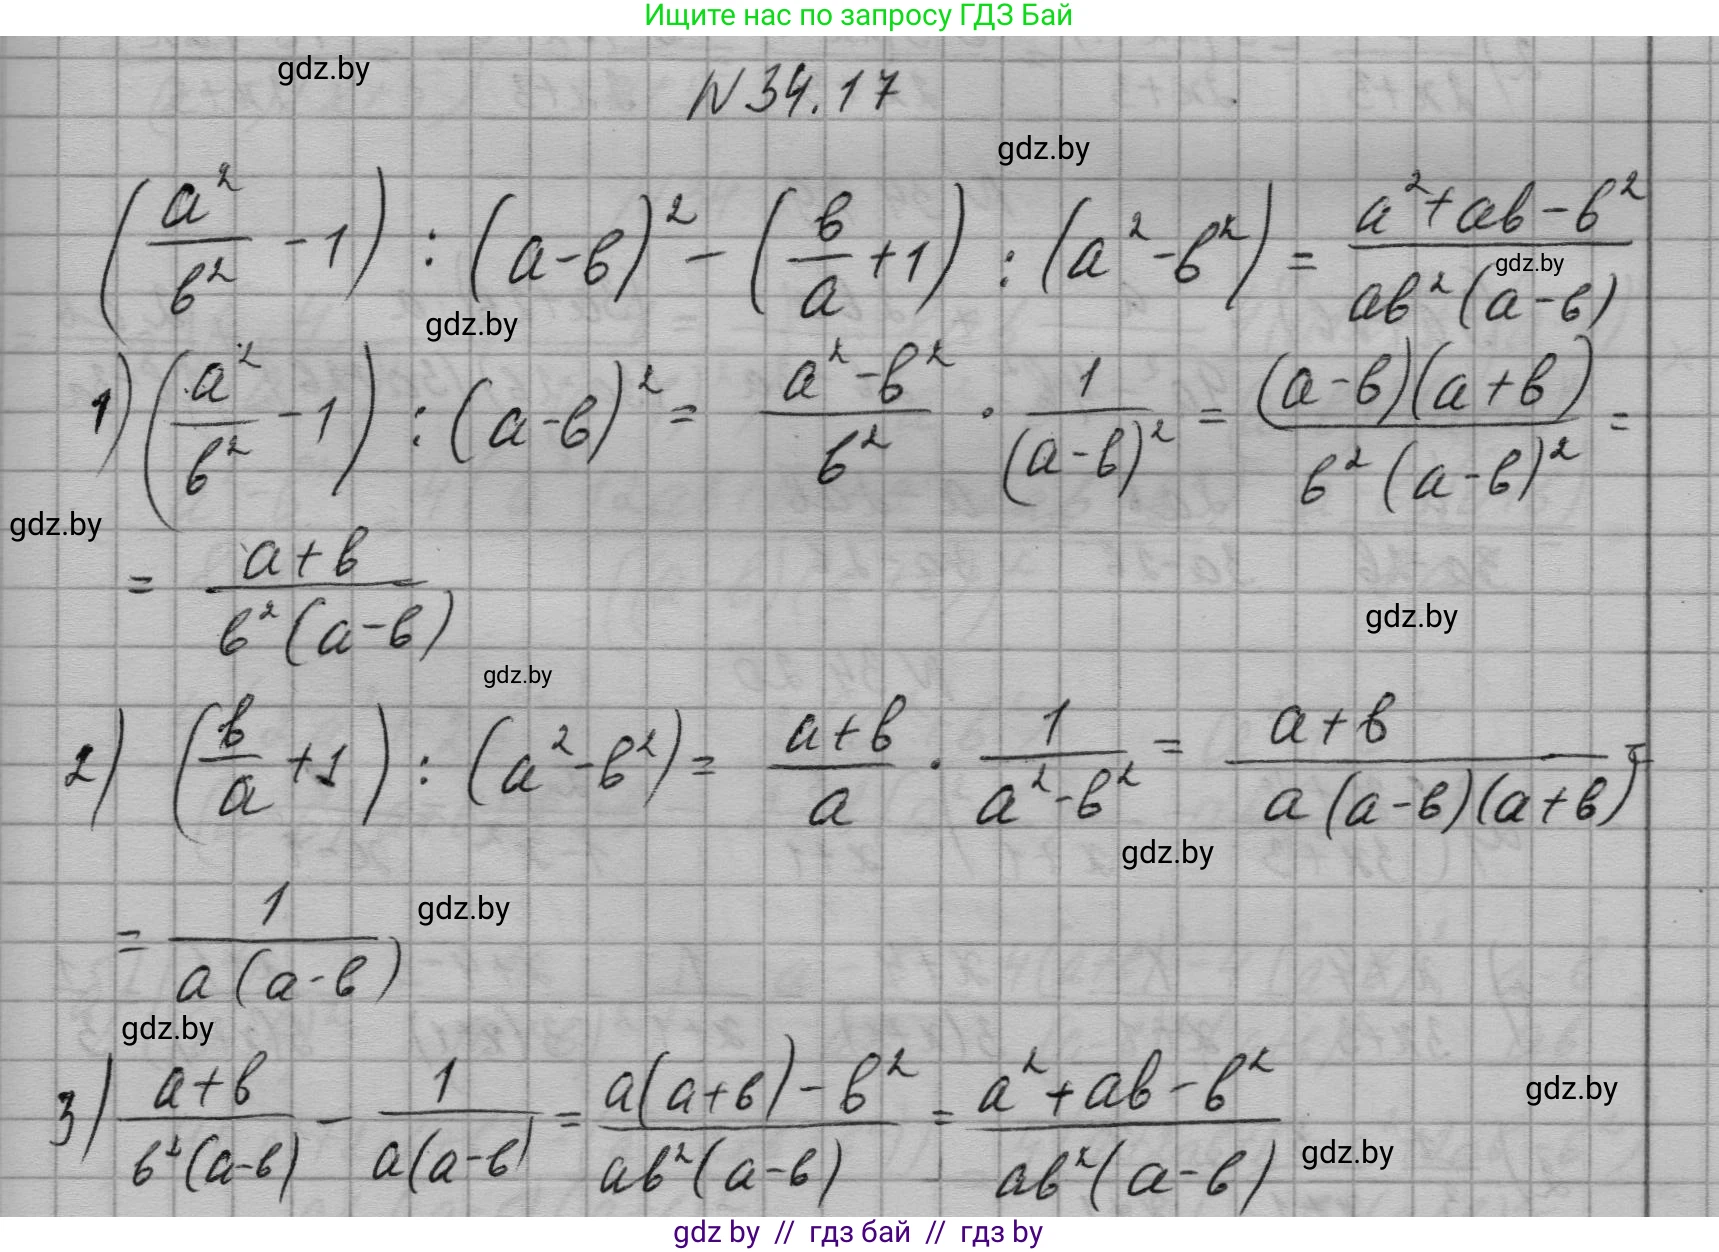 Ищите нас по запросу ГДЗ Бай
gdz.by
N 34.17
gdz.by
(a²/в² - 1) : (a-в)² - (в/a + 1) : (a² - в²) = (a² + aв - в²)/(aв²(a-в))
gdz.by
gdz.by
1) (a²/в² - 1) : (a-в)² = (a² - в²)/в² · 1/(a-в)² = ((a-в)(a+в))/(в²(a-в)²) =
gdz.by
= (a+в)/(в²(a-в))
gdz.by
gdz.by
2) (в/a + 1) : (a² - в²) = (a+в)/a · 1/(a² - в²) = (a+в)/(a(a-в)(a+в)) =
gdz.by
= 1/(a(a-в))
gdz.by
gdz.by
3) (a+в)/(в²(a-в)) - 1/(a(a-в)) = (a(a+в) - в²)/(aв²(a-в)) = (a² + aв - в²)/(aв²(a-в))
gdz.by
gdz.by
gdz by // гдз бай // гдз by